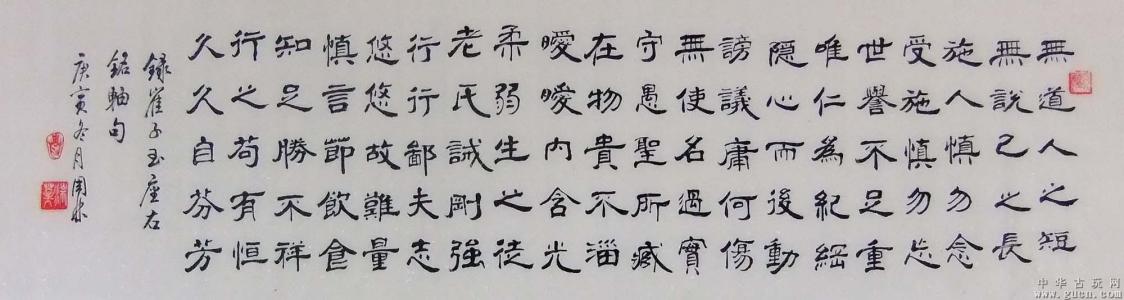 無道人之短
無說己之長
施人慎勿念
受施慎勿忘
世譽不足重
唯仁為紀綱
隱心而後動
謗議庸何傷
無使名過實
守愚聖所臧
在物貴不淄
曖曖內含光
柔弱生之徒
老氏誡剛強
行行鄙夫志
悠悠故難量
慎言節飲食
知足勝不祥
行之苟有恒
久久自芬芳
錄崔子玉座右
銘軸句
庚寅冬月周
中华古玩网
www.gucn.com